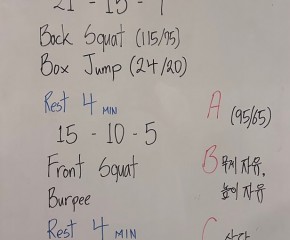 21 - 15 - 9
Back Squat (115/75)
Box Jump (24/20)
Rest 4 MIN
15 - 10 - 5
Front Squat
Burpee
Rest 4 MIN
A (95/65)
B 무게 자유,
높이 자유
C